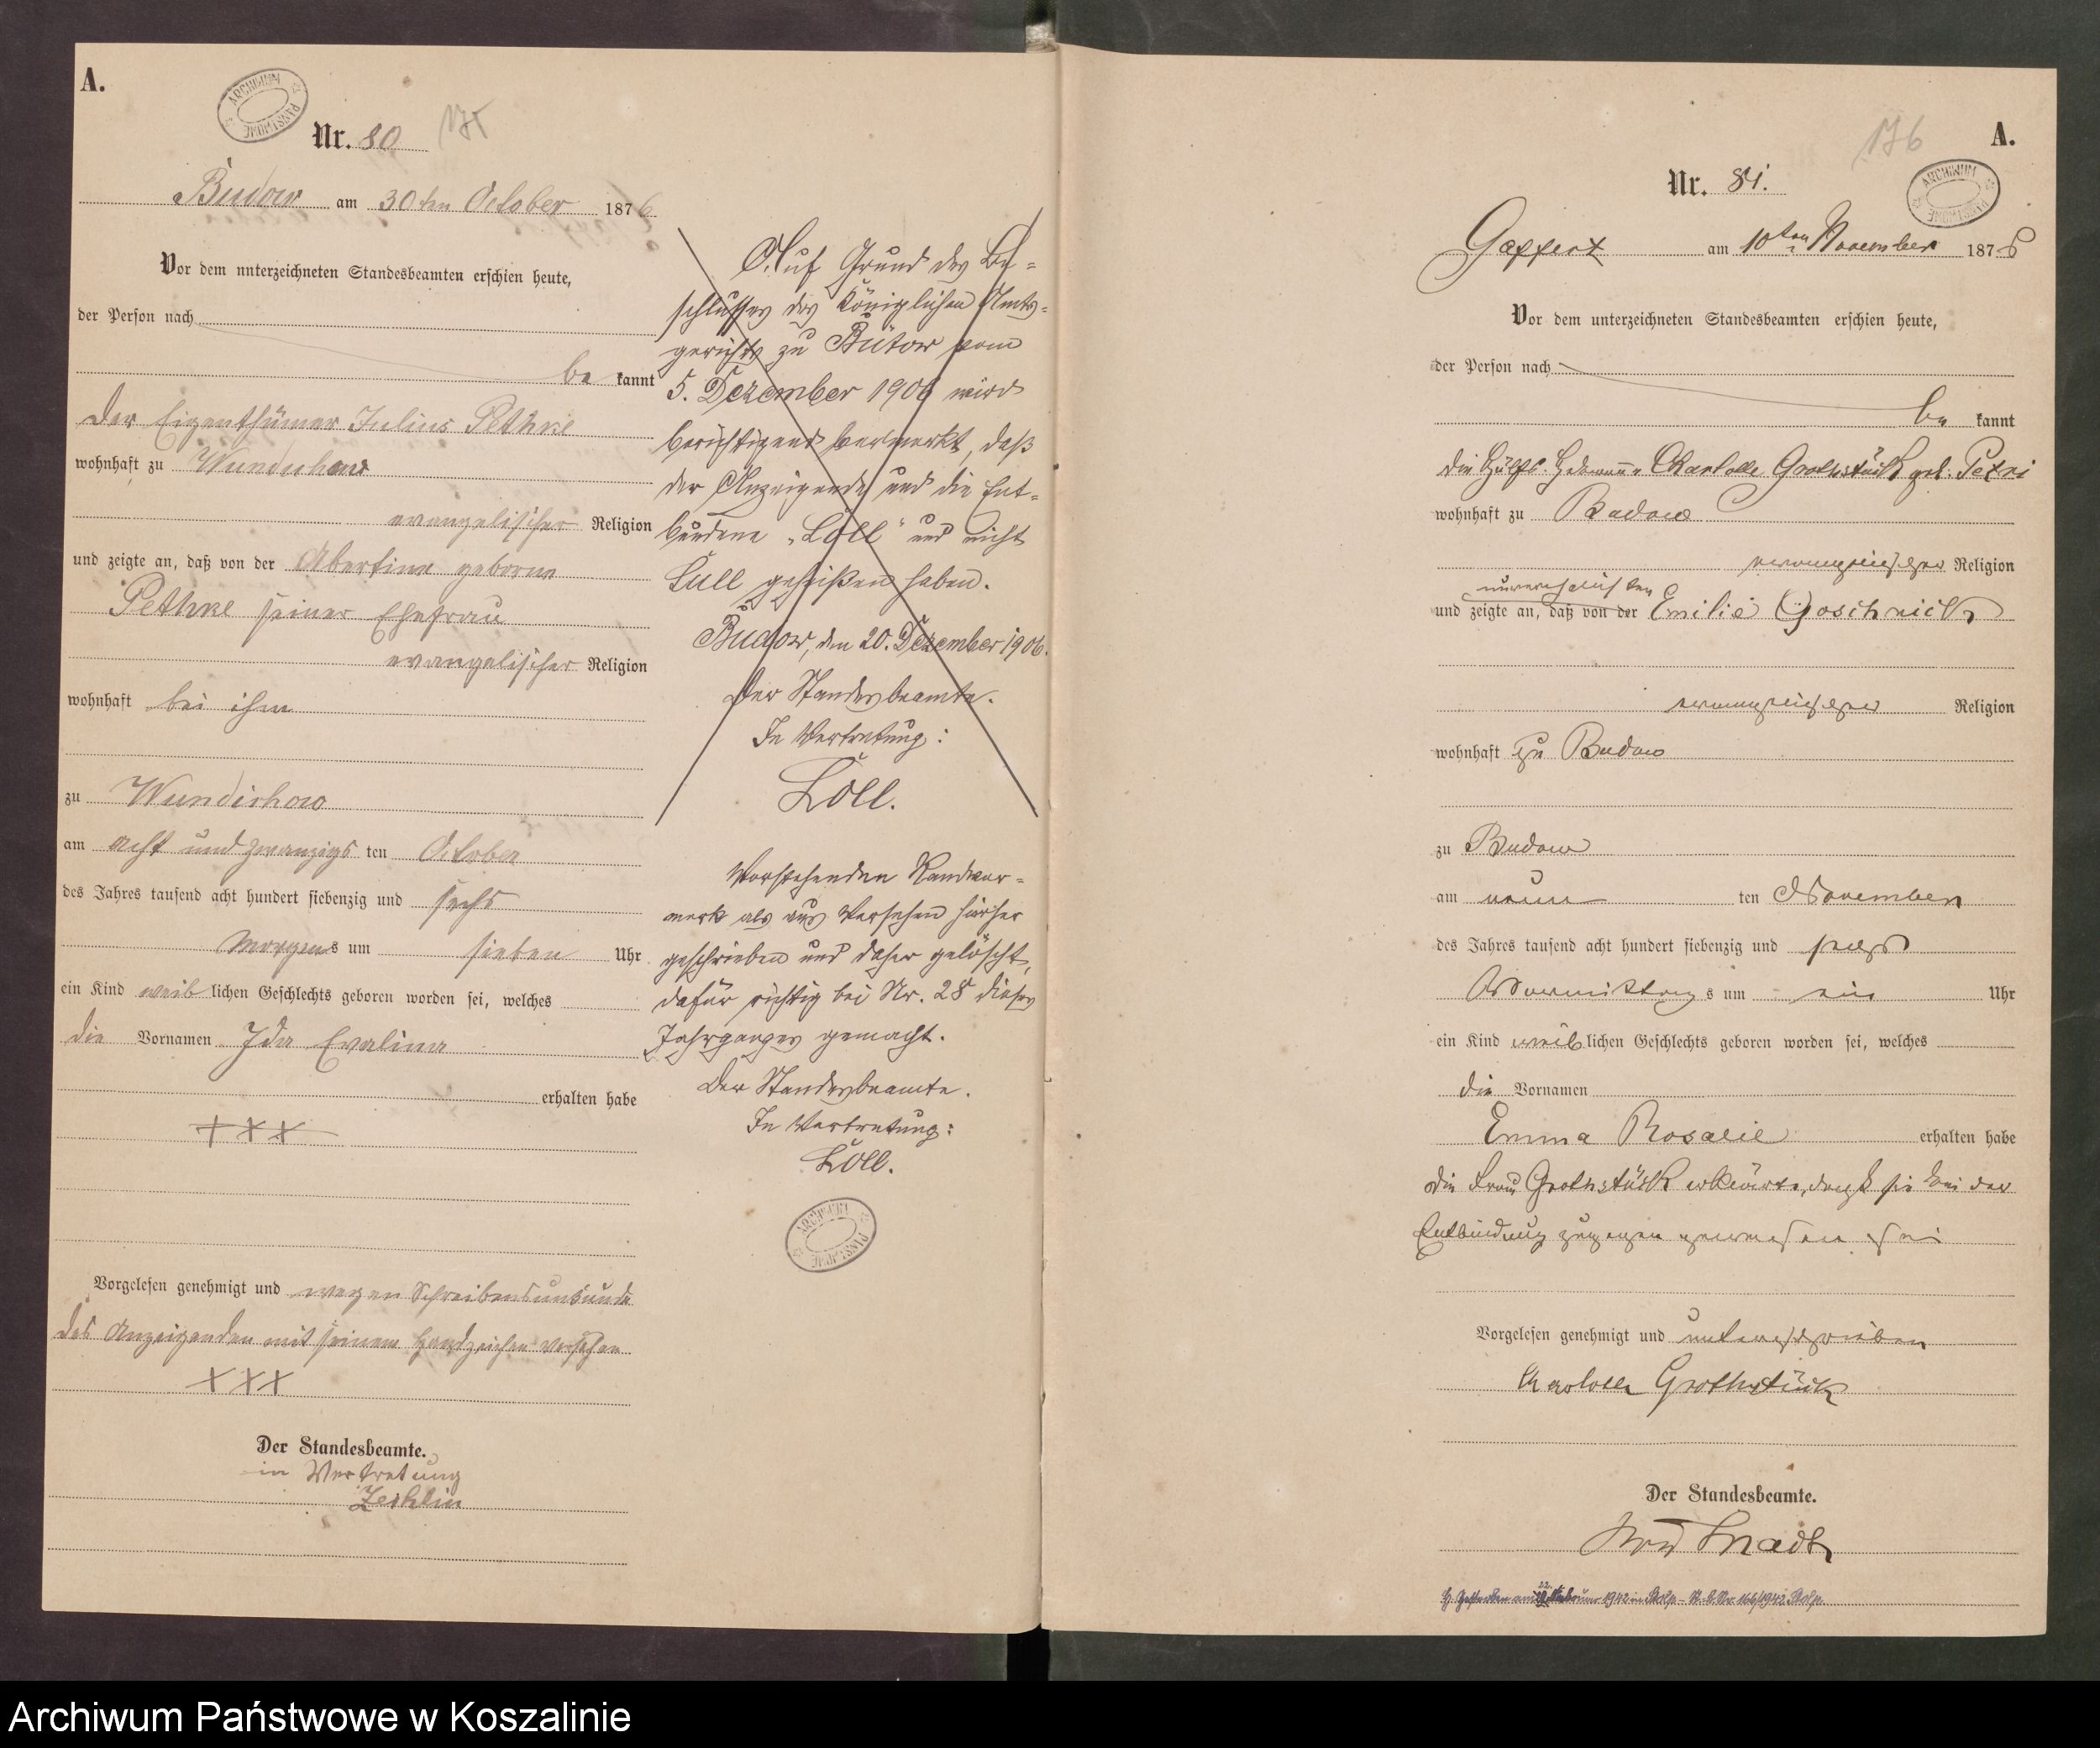 A.
ARCHIWUM PAŃSTWOWE
Nr. 80
175
Budow am 30ten October 1876
Vor dem unterzeichneten Standesbeamten erschien heute,
der Person nach
be kannt
der Eigenthümer Julius Pethke
wohnhaft zu Wundichow
evangelischer Religion
und zeigte an, daß von der Albertine geborne
Pethke seiner Ehefrau
evangelischer Religion
wohnhaft bei ihm
zu Wundichow
am acht und zwanzigs ten October
des Jahres tausend acht hundert siebenzig und sechs
Morgens um sieben Uhr
ein Kind weib lichen Geschlechts geboren worden sei, welches
die Vornamen Ida Evaline
erhalten habe
+++
Vorgelesen genehmigt und wegen Schreibensunkunde
des Anzeigenden mit seinem Handzeichen versehen
XXX
Der Standesbeamte.
in Vertretung
Auf Grund des Be=
schlusses des Königlichen Amts=
gerichts zu Bütow vom
5. Dezember 1906 wird
berichtigend vermerkt, daß
der Anzeigende und die Ent=
bundene „Löll“ und nicht
Lull geheißen haben.
Budow, den 20. Dezember 1906.
Der Standesbeamte.
In Vertretung:
Löll.
Vorstehenden Randver=
merk als aus Versehen hierher
geschrieben und daher gelöscht,
dafür richtig bei Nr. 28 dieses
Jahrganges gemacht.
Der Standesbeamte.
In Vertretung:
Löll.
ARCHIWUM PAŃSTWOWE
176
A.
Nr. 81.
ARCHIWUM PAŃSTWOWE
Gaffert am 10ten November 1876
Vor dem unterzeichneten Standesbeamten erschien heute,
der Person nach
be kannt
die Hülfs-Hebamme Charlotte Grothstück geb. Petri
wohnhaft zu Budow
evangelischer Religion
unverehelichten
und zeigte an, daß von der Emilie Goschnick
evangelischer Religion
wohnhaft zu Budow
zu Budow
am neun ten November
des Jahres tausend acht hundert siebenzig und sechs
s um ein Uhr
ein Kind weib lichen Geschlechts geboren worden sei, welches
die Vornamen
Emma Rosalie erhalten habe
die Frau Grothstück erklärte, daß sie bei der
Entbindung zugegen gewesen sei
Vorgelesen genehmigt und unterschrieben
Charlotte Grothstück
Der Standesbeamte.
Archiwum Państwowe w Koszalinie